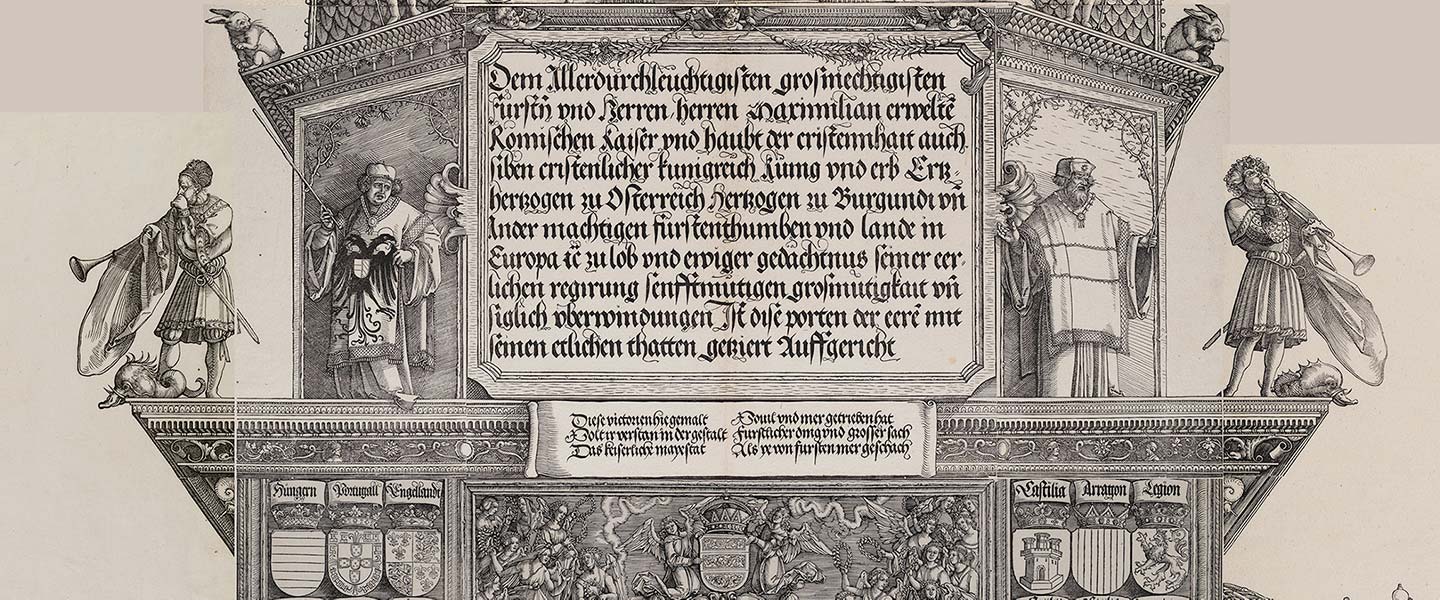 Dem Allerdurchleuchtigisten grosmechtigisten
fürstn̄ vnd Herren herren Maximilian erweltē
Romischen Kaiser vnd haubt der cristennhait auch
siben cristenlicher kunigreich Küng vnd erb Ertz-
hertzogen zu Osterreich Hertzogen zu Burgundi vn̄
Ander machtigen fürstenthumben vnd lande in
Europa ⁊c̄ zu lob vnd ewiger gedächtnus seiner eer-
lichen regirung senfftmütigen grosmütigkait vn̄
siglich vberwindungen Ist dise porten der eerē mit
seinen etlichen thatten getziert Auffgericht
Diese victorien hie gemalt
Wolt ir verstan in der gestalt
Das keiserliche mayestat
Souil vnd mer getrieben hat
Fürstlicher ding vnd grosser sach
Als ye von fursten mer geschach
Hungern Portugall Engellandt
Castilia Arragon Legion